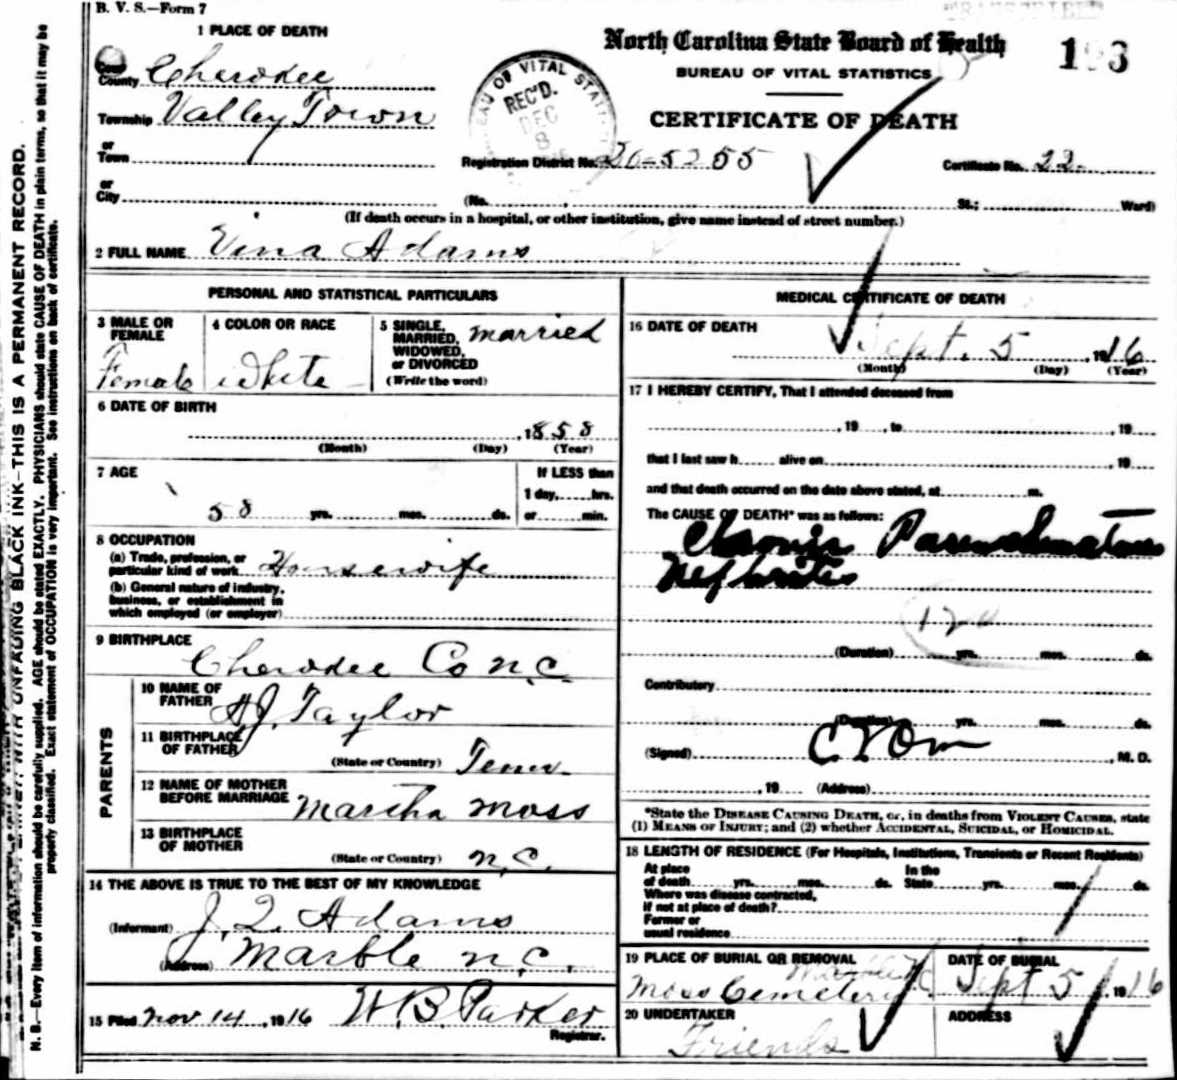 B. V. S.—Form 7
1 PLACE OF DEATH
County Cherokee
Township Valley Town
or
Town
or
City
North Carolina State Board of Health
BUREAU OF VITAL STATISTICS
CERTIFICATE OF DEATH
REC'D.
DEC
8
Registration District No. 20-5255
Certificate No. 22
(No. St.; Ward)
(If death occurs in a hospital, or other institution, give name instead of street number.)
2 FULL NAME Vina Adams
PERSONAL AND STATISTICAL PARTICULARS
3 MALE OR FEMALE
Female
4 COLOR OR RACE
White
5 SINGLE, MARRIED, WIDOWED, or DIVORCED
(Write the word)
married
6 DATE OF BIRTH
, 1858
(Month) (Day) (Year)
7 AGE
58 yrs. mos. ds.
If LESS than
1 day, hrs.
or min.
8 OCCUPATION
(a) Trade, profession, or
particular kind of work Housewife
(b) General nature of industry,
business, or establishment in
which employed (or employer)
9 BIRTHPLACE
Cherokee Co N.C.
PARENTS
10 NAME OF FATHER
A J. Taylor
11 BIRTHPLACE OF FATHER
(State or Country) Tenn.
12 NAME OF MOTHER
BEFORE MARRIAGE Martha Moss
13 BIRTHPLACE OF MOTHER
(State or Country) N.C.
14 THE ABOVE IS TRUE TO THE BEST OF MY KNOWLEDGE
(Informant) J. Q. Adams
(Address) Marble N.C.
15 Filed Nov 14, 1916 W. B. Parker
Registrar.
MEDICAL CERTIFICATE OF DEATH
16 DATE OF DEATH
Sept. 5, 1916
(Month) (Day) (Year)
17 I HEREBY CERTIFY, That I attended deceased from
, 19 , to , 19
that I last saw h alive on , 19
and that death occurred on the date above stated, at m.
The CAUSE OF DEATH* was as follows:
Chronic Parenchymatous
Nephritis
120
(Duration) yrs. mos. ds.
Contributory
(Duration) yrs. mos. ds.
(Signed) , M. D.
, 19 (Address)
*State the DISEASE CAUSING DEATH, or, in deaths from VIOLENT CAUSES, state
(1) MEANS OF INJURY; and (2) whether ACCIDENTAL, SUICIDAL, or HOMICIDAL.
18 LENGTH OF RESIDENCE (For Hospitals, Institutions, Transients or Recent Residents)
At place of death yrs. mos. ds. In the State yrs. mos. ds.
Where was disease contracted,
if not at place of death?
Former or
usual residence
19 PLACE OF BURIAL OR REMOVAL
Marble N C
Moss Cemetery
DATE OF BURIAL
Sept 5, 1916
20 UNDERTAKER
Friends
ADDRESS
N. B.—Every item of information should be carefully supplied. AGE should be stated EXACTLY. PHYSICIANS should state CAUSE OF DEATH in plain terms, so that it may be
properly classified. Exact statement of OCCUPATION is very important. See instructions on back of certificate.
UNFADING BLACK INK—THIS IS A PERMANENT RECORD.